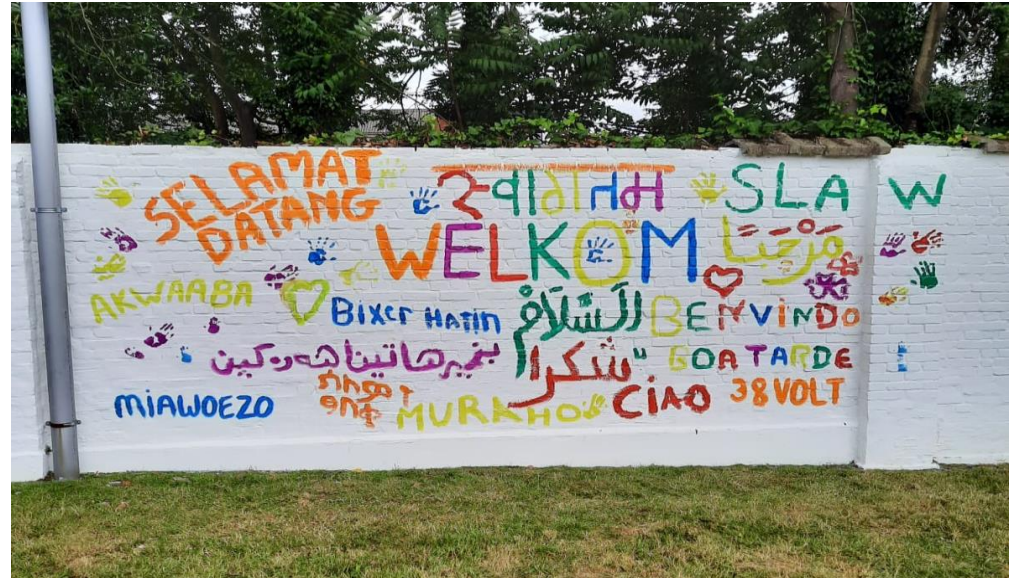 SELAMAT
DATANG
स्वागतम
SLAW
WELKOM
مرحبا
AKWAABA
Bixer HATIN
السلام
BENVINDO
بخێرهاتیناهەوەدکین
شكرا
BOA TARDE
MIAWOEZO
MURKHO
CIAO
38 VOLT